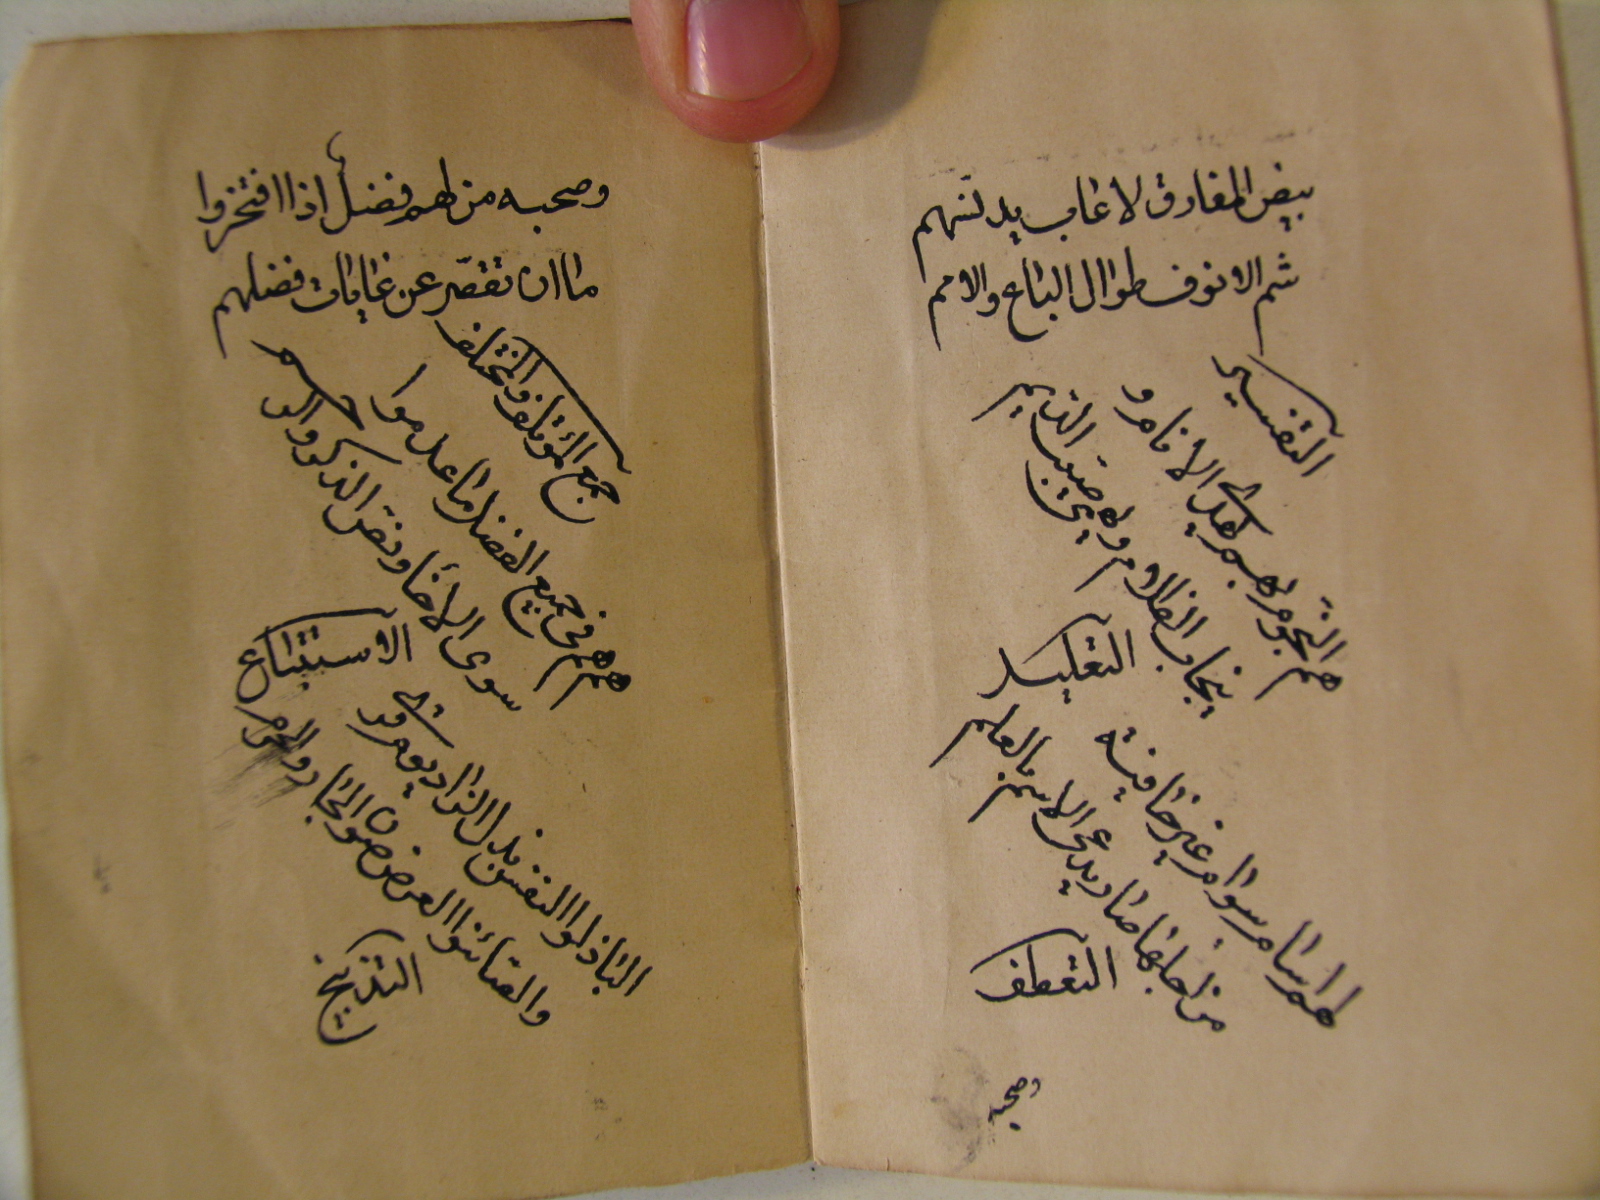 بيض المفارق لا عاب يدنسهم
شم الانوف طوال الباع والامم
التفسير
هم النجوم بهم يهدى الانام و
ينجاب الظلام ويهمي صيب الديم
لهم اسام سوام غير خافية
من اجلها صار يدعى الاسم بالعلم
التعطف
وصحبه
وصحبه من لهم فضل اذا افتخروا
ما ان تقصّر عن غايات فضلهم
جمع المؤتلف والمختلف
هم هم فى جميع الفضل ما عدموا
سوى الأخا ونص الذكر والرحم
الاستتباع
الباذلوا النفس بذل الزاد يوم قرى
والصائنوا العرض صون الجار والحرم
التدبيج